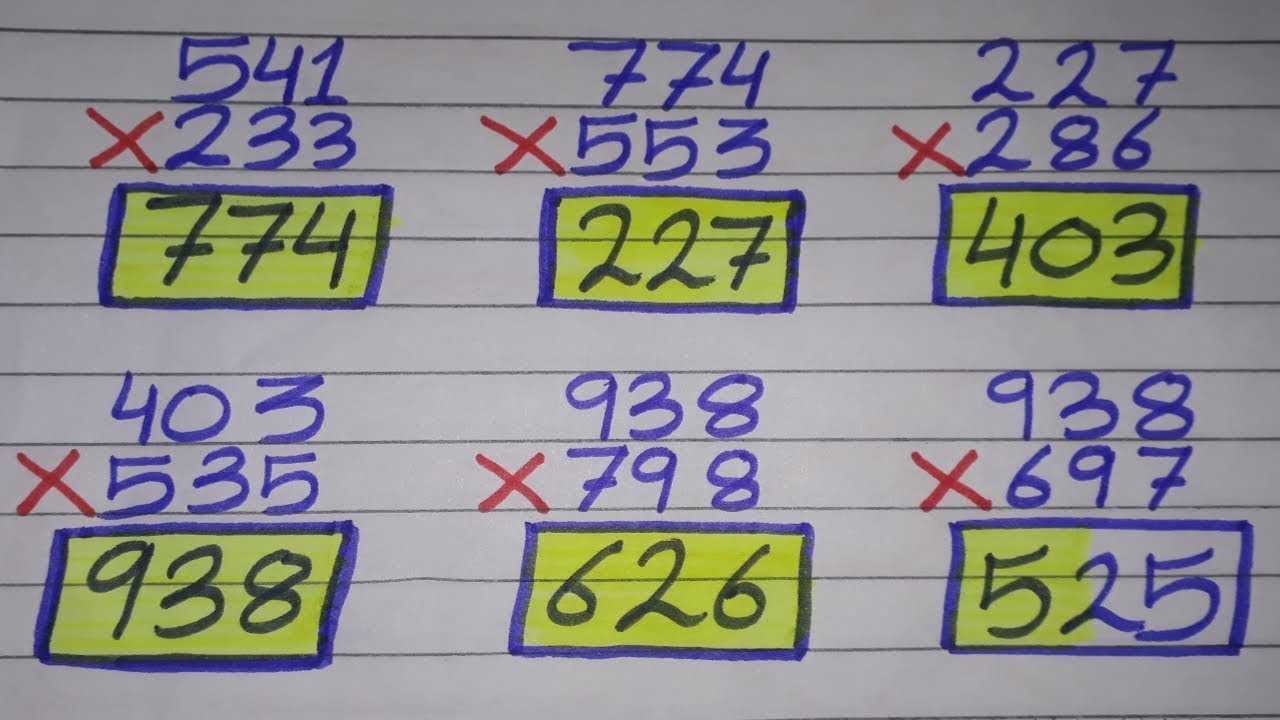 541 774 227
×233 ×553 ×286
774 227 403
403 938 938
×535 ×798 ×697
938 626 525